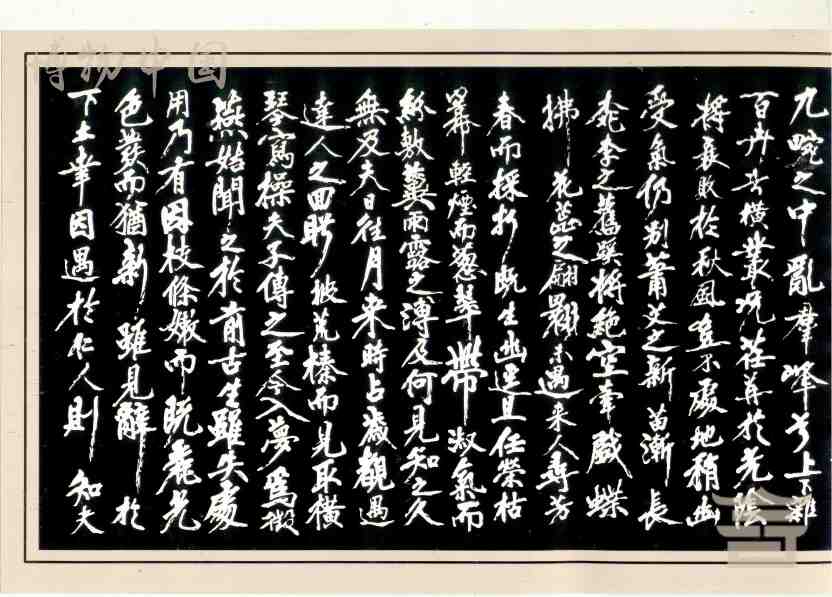 九畹之中亂群峰兮上下雜
百卉兮橫叢况荏苒於光陰
將衰敗於秋風豈不處地稍幽
受氣仍别蕭艾之新苗漸長
桃李之舊蹊將絶空牽戲蝶
拂花蕊之翩翾未遇来人尋芳
春而採折既生幽逕且任榮枯
冪輕煙而蔥翠帶淑氣而
紛敷冀雨露之溥及何見知之久
無及夫日往月来時占歲觀遇
達人之回眄披荒榛而見取橫
琴寫操夫子傳之至今入夢爲徵
燕姞聞之於前古生雖失處
用乃有因枝條嫩而既麗光
色發而猶新雖見辭於
下土幸因遇於仁人則知夫
博物中国